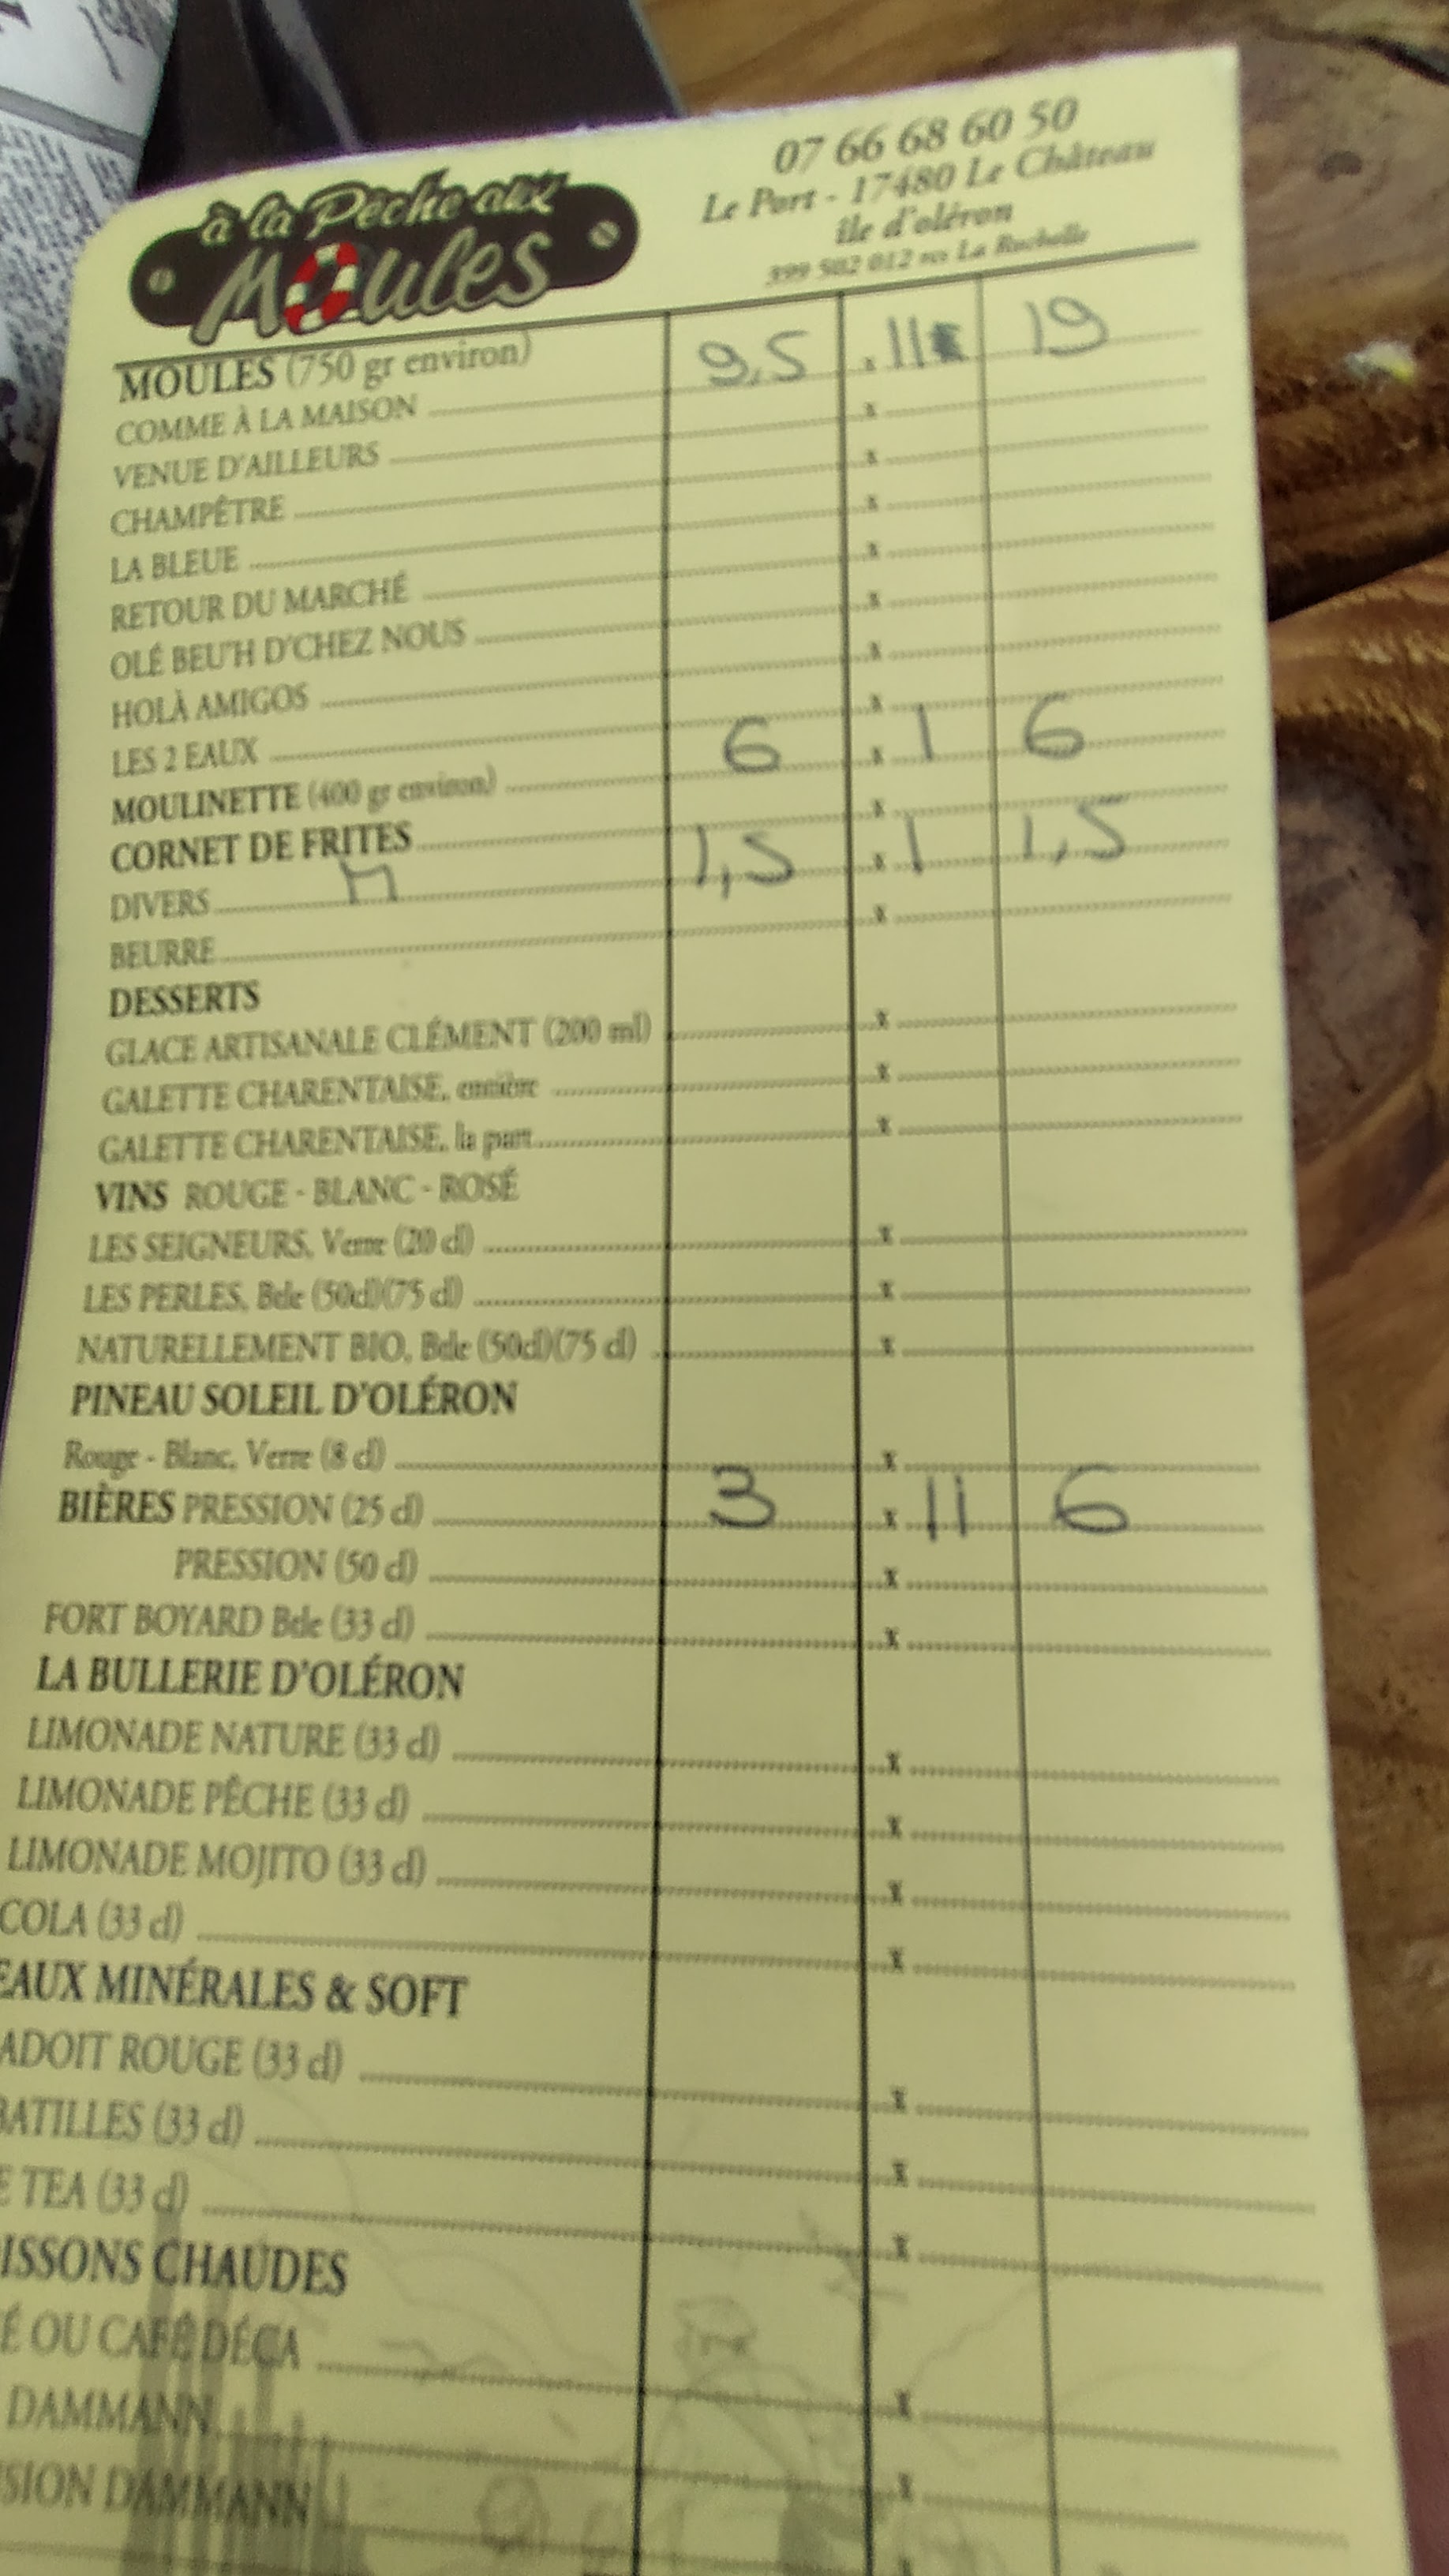 à la Pêche aux
Moules
07 66 68 60 50
Le Port - 17480 Le Château
île d'oléron
399 502 012 rcs La Rochelle
MOULES (750 gr environ) 9,5 x 11 19
COMME À LA MAISON x
VENUE D'AILLEURS x
CHAMPÊTRE x
LA BLEUE x
RETOUR DU MARCHÉ x
OLÉ BEU'H D'CHEZ NOUS x
HOLÀ AMIGOS x
LES 2 EAUX 6 x 1 6
MOULINETTE (400 gr environ) x
CORNET DE FRITES 1,5 x 1 1,5
DIVERS M x
BEURRE
DESSERTS
GLACE ARTISANALE CLÉMENT (200 ml) x
GALETTE CHARENTAISE, entière x
GALETTE CHARENTAISE, la part x
VINS ROUGE - BLANC - ROSÉ
LES SEIGNEURS, Verre (20 cl) x
LES PERLES, Btle (50cl)(75 cl) x
NATURELLEMENT BIO, Btle (50cl)(75 cl) x
PINEAU SOLEIL D'OLÉRON
Rouge - Blanc, Verre (8 cl) x
BIÈRES PRESSION (25 cl) 3 x 11 6
PRESSION (50 cl) x
FORT BOYARD Btle (33 cl) x
LA BULLERIE D'OLÉRON
LIMONADE NATURE (33 cl) x
LIMONADE PÊCHE (33 cl) x
LIMONADE MOJITO (33 cl) x
COLA (33 cl) x
EAUX MINÉRALES & SOFT
ADOIT ROUGE (33 cl) x
BATILLES (33 cl) x
E TEA (33 cl) x
ISSONS CHAUDES
É OU CAFÉ DÉCA x
DAMMANN x
SION DAMMANN x